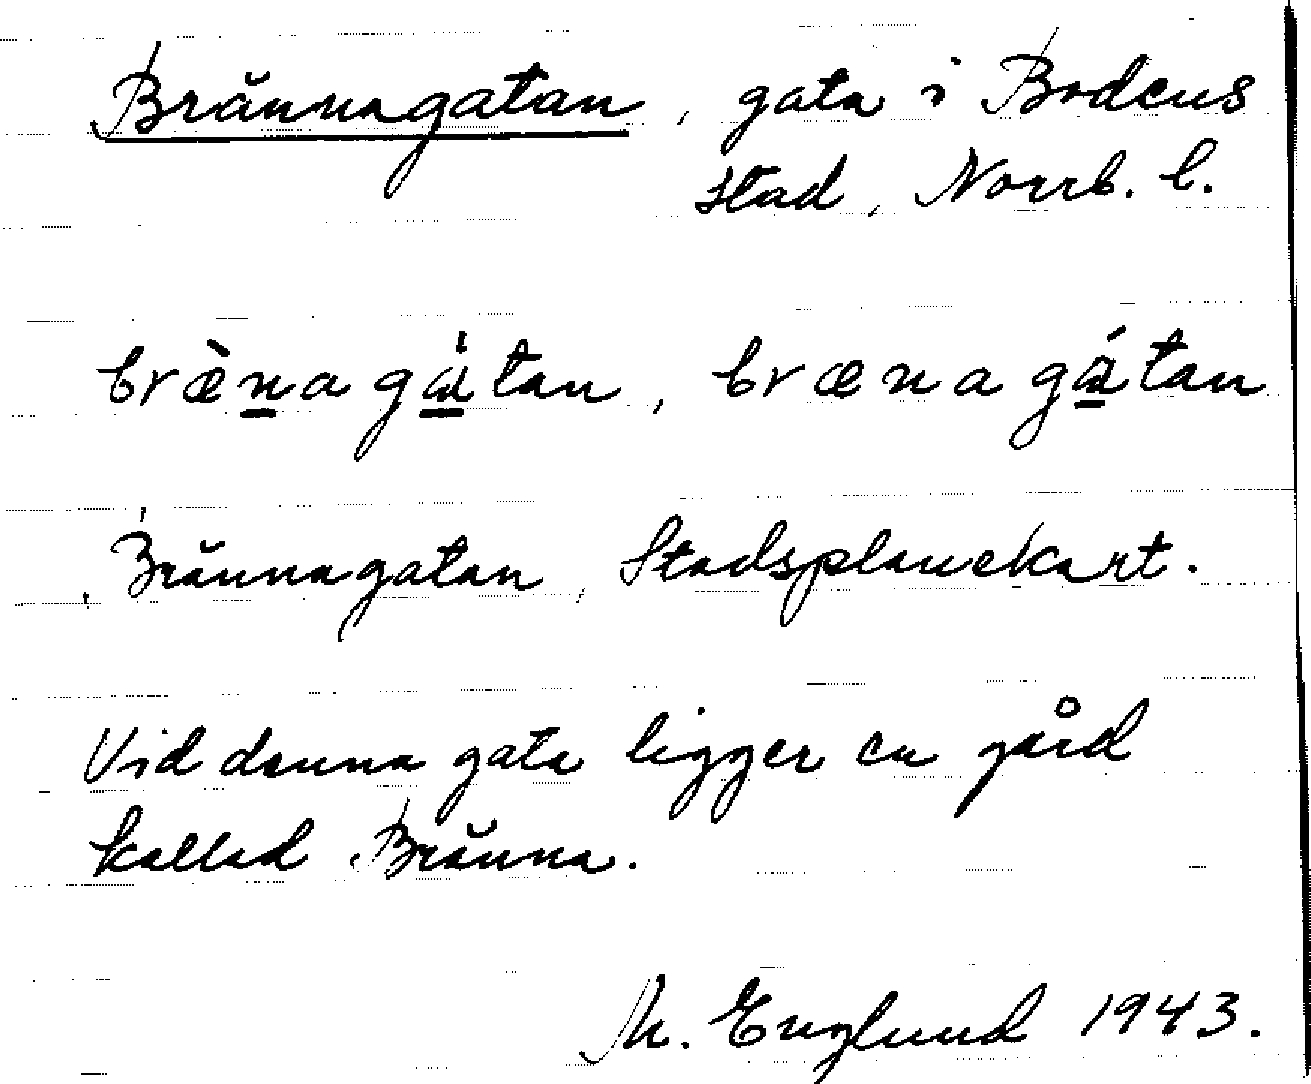 Brännagatan, gata i Bodens
stad, Norrb. l.
bræ̀n̲agá̲tan, brænagá̲tan
Brännagatan, Stadsplanekart.
Vid denna gata ligger en gård
kallad Bränna.
M. Englund 1943.